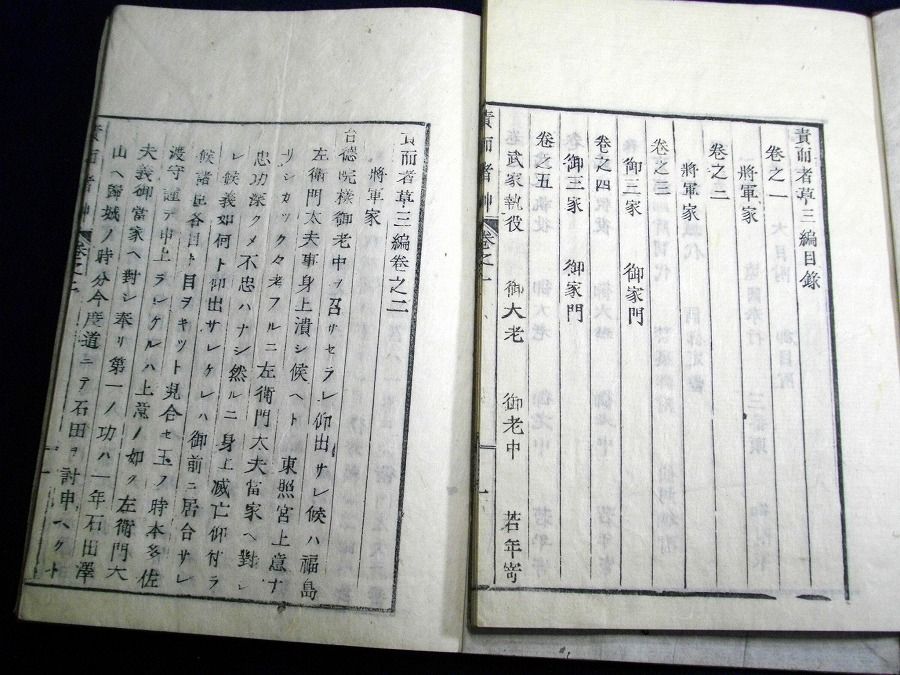 責而者草三編目錄
卷之一
將軍家
卷之二
將軍家
卷之三
御三家 御家門
卷之四
御三家 御家門
卷之五
武家執役 御大老 御老中 若年寄
責而者草 卷之一
責而者草三編卷之二
將軍家
台德院樣御老中ヲ召サセラレ仰出サレ候ハ福島
左衛門太夫事身上潰シ候ヘト 東照宮上意ナ
リシカツク々考フルニ左衛門太夫當家ヘ對シ
忠功深クメ不忠ハナシ然ルニ身上滅亡仰付ラ
レ候義如何ト仰出サレケレハ御前ニ居合サレ
候諸臣各目ト目ヲキット見合セ玉フ時本多佐
渡守謹テ申上ラレケルハ上意ノ如ク左衛門大
夫義御當家ヘ對シ奉リ第一ノ功ハ一年石田澤
山ヘ歸城ノ時分今度道ニテ石田ヲ討申ヘクト
責而者草 卷之二